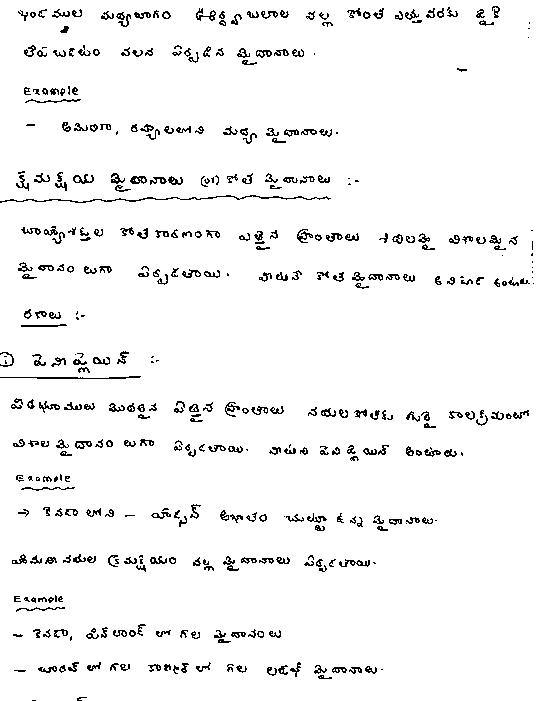 ఖండముల మధ్యభాగం ఊర్ధ్వ బలాల వల్ల కొంత ఎత్తువరకు పైకి
లేపబడటం వలన ఏర్పడిన మైదానాలు.
Example
- అమెరికా, రష్యాలలోని మధ్య మైదానాలు.
క్రమక్షయ మైదానాలు (or) కోత మైదానాలు :-
బాహ్యశక్తుల కోత కారణంగా ఎత్తైన ప్రాంతాలు శిథిలమై విశాలమైన
మైదానం లుగా ఏర్పడతాయి. వాటినే కోత మైదానాలు అని పిలుస్తారు.
రకాలు :-
① పెనిప్లెయిన్ :-
పీఠభూములు మొదలైన ఎత్తైన ప్రాంతాలు నదుల కోతకు గురై కాలక్రమంలో
విశాల మైదానం లుగా ఏర్పడతాయి. వాటిని పెనిప్లెయిన్ అంటారు.
Example
→ కెనడా లోని - హడ్సన్ అఖాతం చుట్టూ ఉన్న మైదానాలు.
హిమానీనదుల క్రమక్షయం వల్ల మైదానాలు ఏర్పడతాయి.
Example
- కెనడా, ఫిన్‌లాండ్ లో గల మైదానాలు
- భారత్ లో గల కాశ్మీర్ లో గల లడఖ్ మైదానాలు.